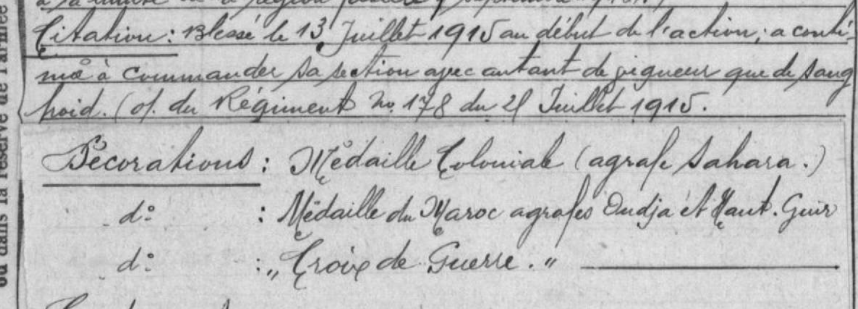 à sa
Citation: Blessé le 13 Juillet 1915 au début de l'action, a conti-
nué à commander sa section avec autant de vigueur que de sang
froid. (o. du Régiment No 178 du 21 Juillet 1915.
Décorations: Médaille Coloniale (agrafe Sahara.)
d° : Médaille du Maroc agrafes Oudja et Haut. Guir
d° : „Croix de Guerre.“
ou dans la réserve de l'armée